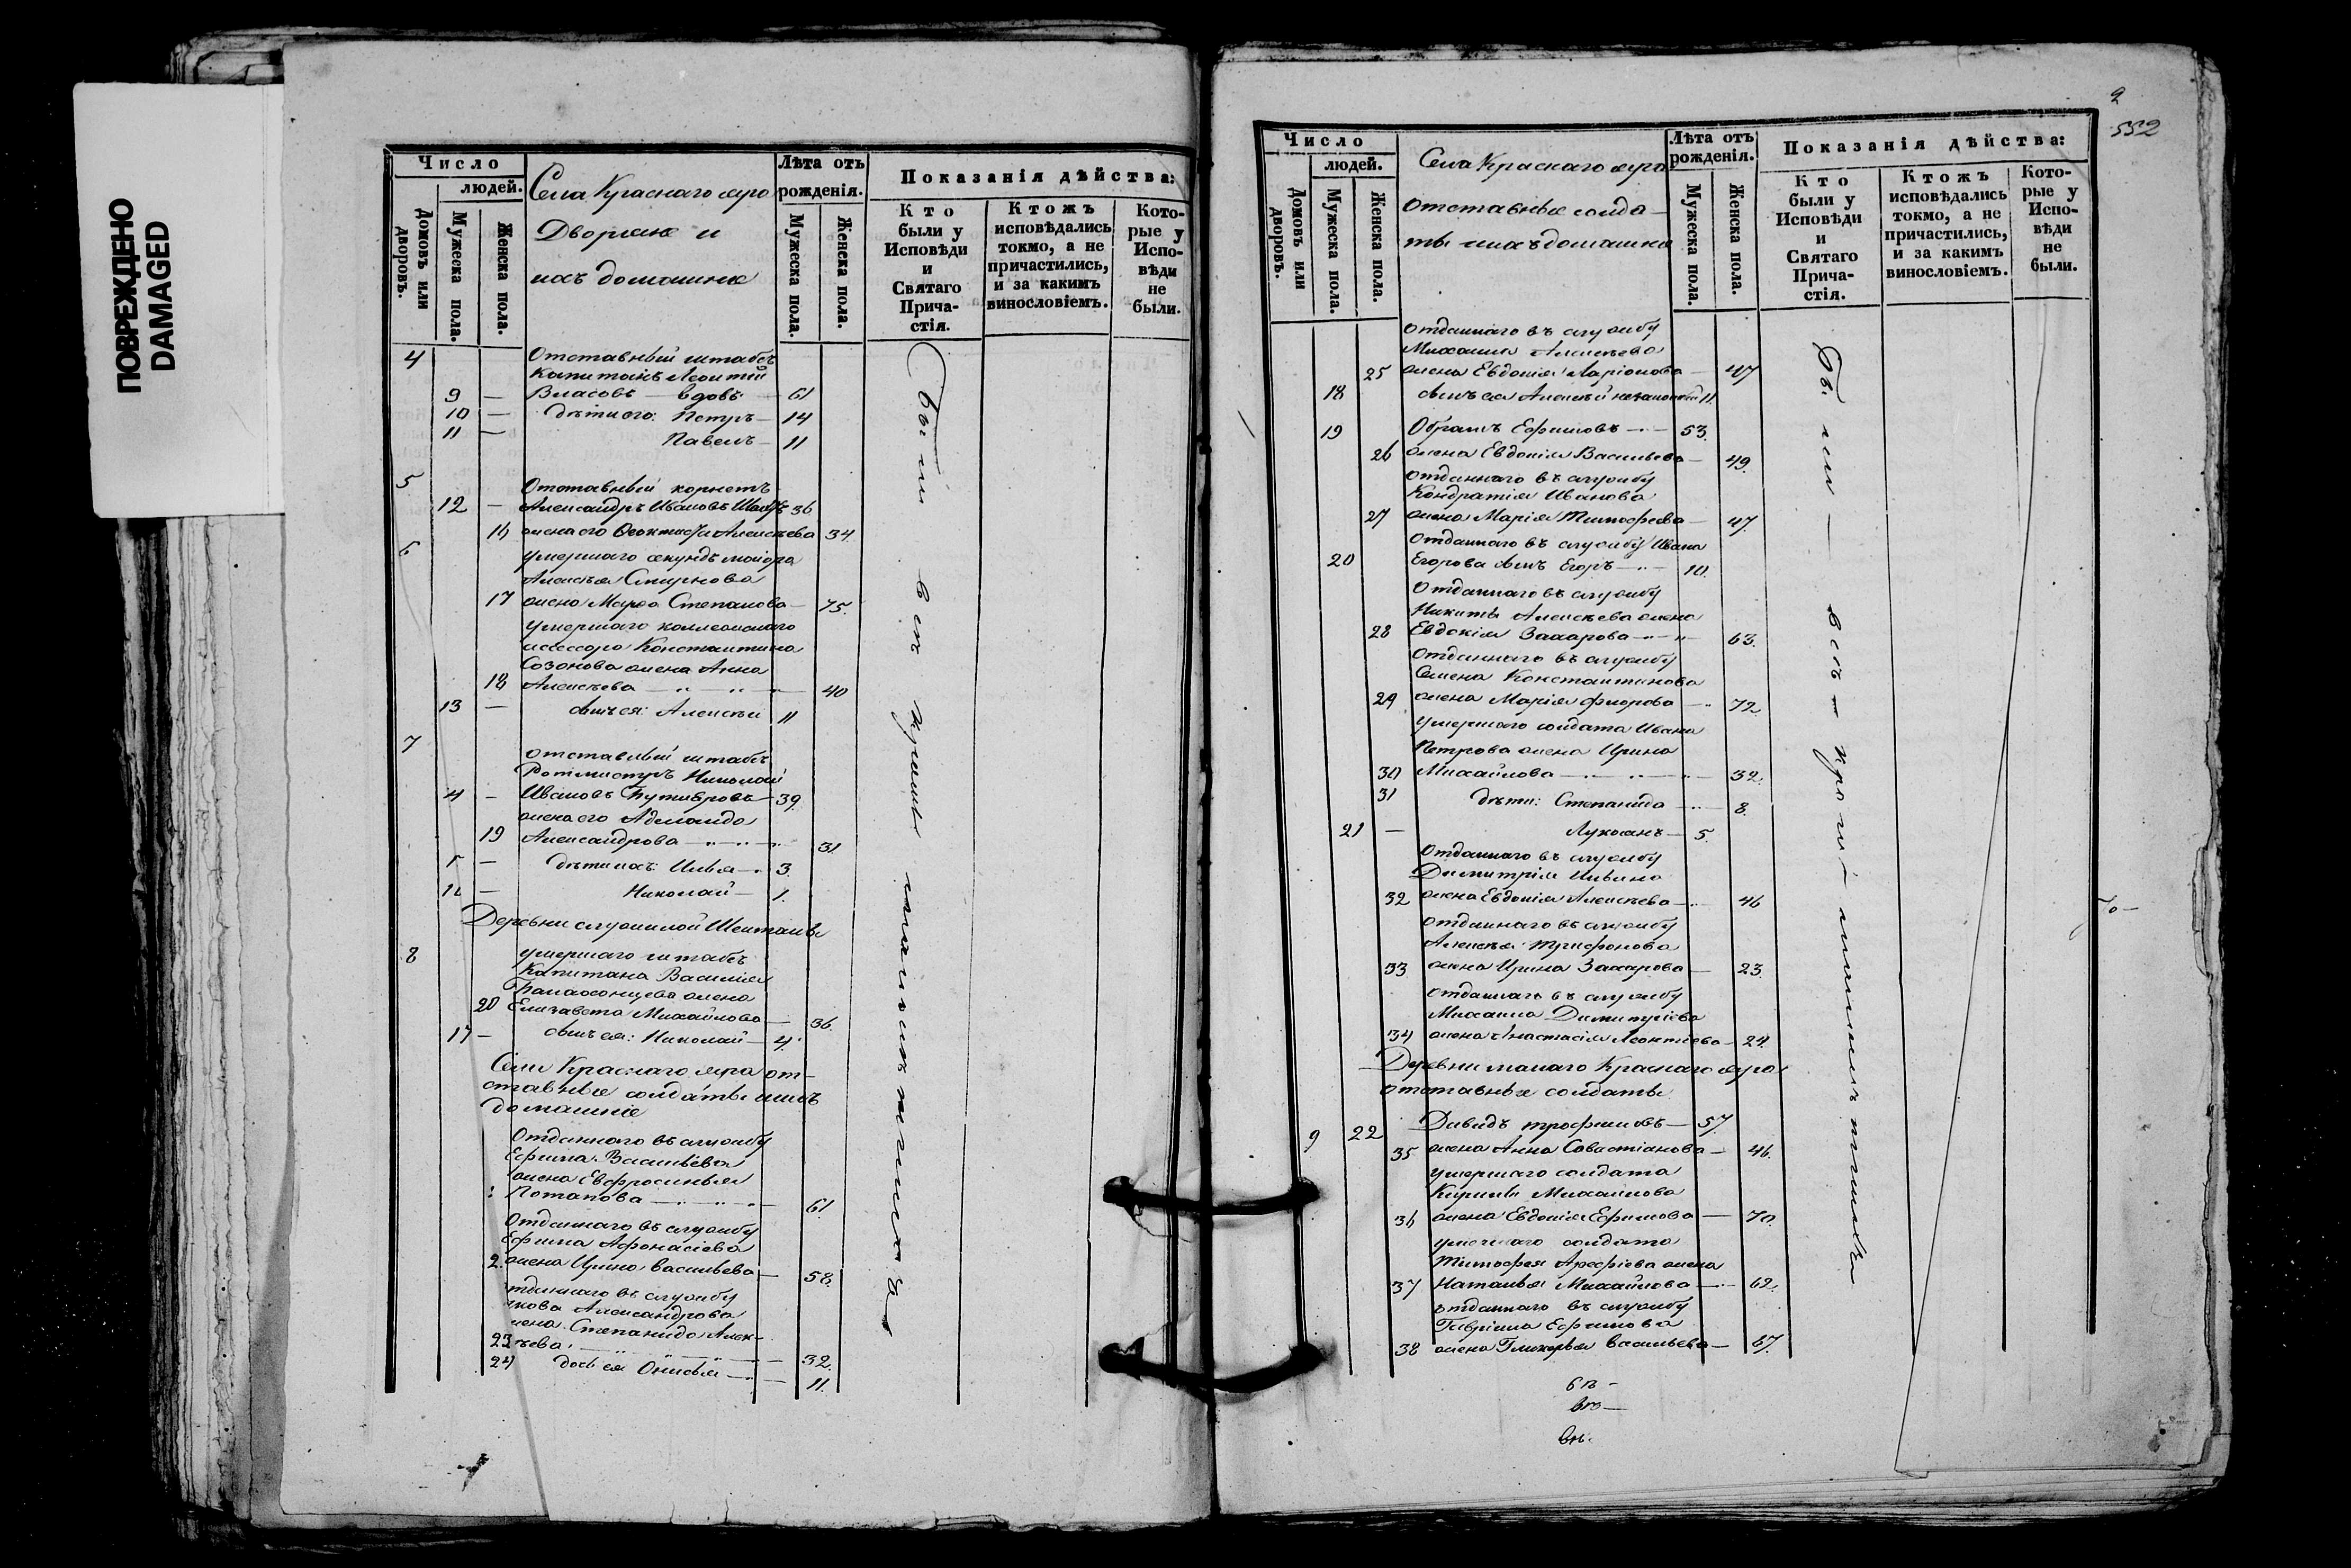 ПОВРЕЖДЕНО
DAMAGED
Число
людей.
Домовъ или дворовъ.
Мужеска пола.
Женска пола.
Села Краснаго яра
Дворяне и
ихъ домашніе
Лѣта отъ
рожденія.
Мужеска пола.
Женска пола.
Показанія дѣйства:
Кто
были у
Исповѣди
и
Святаго
Прича-
стія.
Ктожъ
исповѣдались
токмо, а не
причастились,
и за какимъ
винословіемъ.
Кото-
рые у
Испо-
вѣди
не
были.
4 Отставный штабсъ
Капитанъ Леонтій
9 — Власовъ — вдовъ — 61
10 — дѣти его: Петръ — 14
11 — Павелъ — 11
5 Отставный корнетъ
12 — Александръ Ивановъ 36
16 жена его Ѳеоктиста Алексѣева 34.
6 умершаго секундъ маіора
Алексѣя Смирнова
17 жена Марѳа Степанова — 75.
умершаго коллежскаго
ассесора Константина
Созонова жена Анна
18 Алексѣева — 40
13 — сынъ ея: Алексѣй 11
7 отставный штабсъ
Ротмистръ Николай
Ивановъ — 39.
жена его Аделаида
19 Александрова — 31
— дѣти ихъ: Илья — 3.
— Николай — 1.
Деревни
8 умершаго штабсъ
Капитана Василія
жена
20 Елизавета Михайлова — 36.
17 — сынъ ея: Николай — 4.
Села Краснаго яра от-
ставные солдаты и ихъ
домашніе
Отданнаго въ службу
Ефима Васильева
жена Евфросинья
Потапова — 61.
Отданнаго въ службу
Ефима Афонасіева
2. жена Ирина Васильева — 58.
тданнаго въ службу
кова Александрова
жена Степанида Алек-
23 ѣева — 32.
24 дочь ея Онисья — 11.
Были всѣ кромѣ малолѣтнихъ
2
552
Число
людей.
Домовъ или дворовъ.
Мужеска пола.
Женска пола.
Села Краснаго яра
отставные солда-
ты и ихъ домашніе
Лѣта отъ
рожденія.
Мужеска пола.
Женска пола.
Показанія дѣйства:
Кто
были у
Исповѣди
и
Святаго
Прича-
стія.
Ктожъ
исповѣдались
токмо, а не
причастились,
и за какимъ
винословіемъ.
Кото-
рые у
Испо-
вѣди
не
были.
отданнаго въ службу
Михаила Алексѣева
25 жена Евдокія Ларіонова — 47
18 сынъ ея Алексѣй 11.
19 Ефимовъ — 53.
26 жена Евдокія Васильева — 49.
отданнаго въ службу
Кондратія Иванова
27 жена Марія Тимофеева — 47.
Отданнаго въ службу Ивана
20 Егорова сынъ Егоръ — 10.
Отданнаго въ службу
Никиты Алексѣева жена
28 Евдокія Захарова — 63.
Отданнаго въ службу
Семена Константинова
29 жена Марія Фиорова — 72
умершаго солдата Ивана
Петрова жена Ирина
30 Михайлова — 32.
31 дѣти: Степанида — 8.
21 — Лукіанъ — 5.
Отданнаго въ службу
Димитрія Ильина
32 жена Евдокія Алексѣева — 46
отданнаго въ службу
Алексѣя Трифонова
33 жена Ирина Захарова — 23.
отданнаго въ службу
Михаила Димитріева
34 жена Анастасія Леонтіева — 24.
Деревни малаго Краснаго яра
отставные солдаты
9 22 Давидъ Трофимовъ — 57.
35 жена Анна Савастіанова — 46.
умершаго солдата
Кирилы Михайлова
36 жена Евдокія Ефимова — 70.
умершаго солдата
Тимофея Арефіева жена
37 Наталья Михайлова — 62.
отданнаго въ службу
Гаврила Ефимова
38 жена Гликерья Васильева — 67.
Были — всѣ — кромѣ малолѣтнихъ